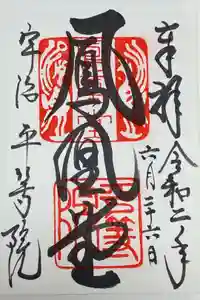 奉拝
令和二年
六月二十六日
鳳凰堂
宇治 平等院